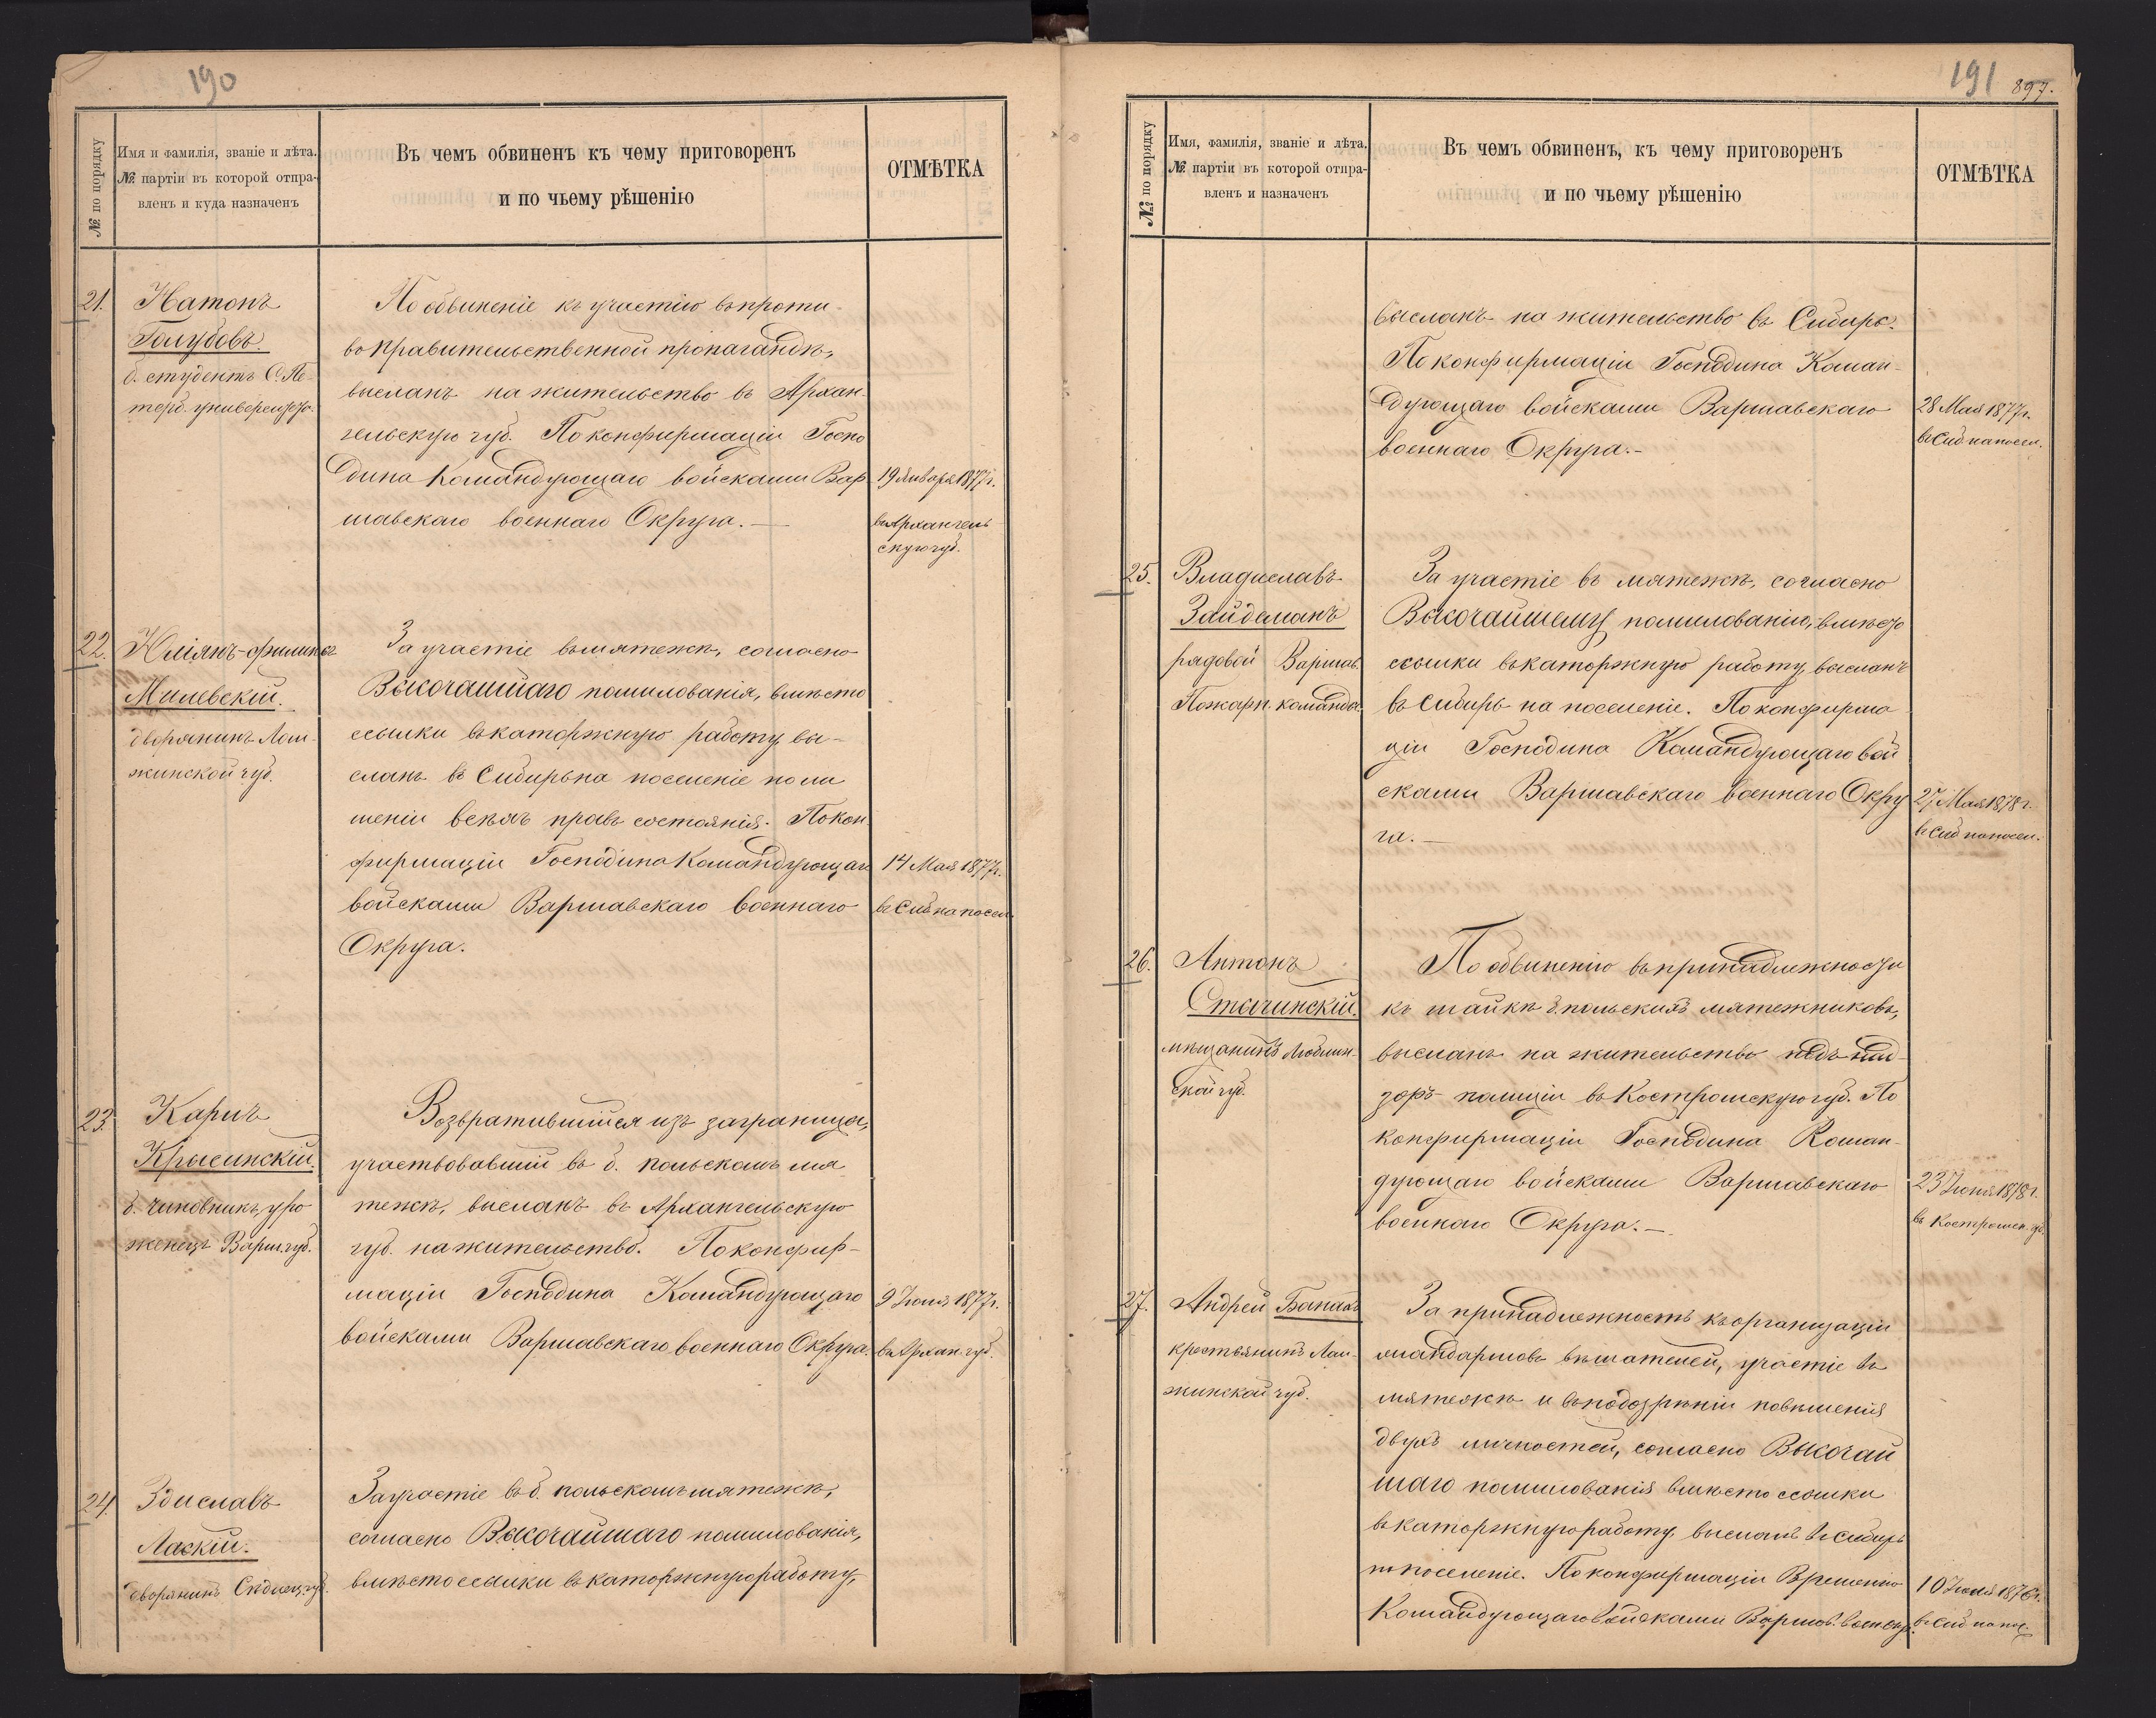 190
№ по порядку
Имя и фамилія, званіе и лѣта.
№ партіи въ которой отпра-
вленъ и куда назначенъ
Въ чемъ обвиненъ къ чему приговоренъ
и по чьему рѣшенію
ОТМѢТКА
21.
Натонъ
Голубовъ.
б. студентъ С. Пе-
терб. университ.
По обвиненіе къ участію въ проти-
во правительственной пропагандѣ,
высланъ на жительство въ Архан-
гельскую губ. По конфирмаціи Госпо
дина Командующаго войсками Вар-
шавскаго военнаго Округа.—
19 Января 1877 г.
въ Архангель
скую губ.
22.
Юліянъ-филиксъ
Милевскій.
дворянинъ Лом-
жинской губ.
За участіе въ мятежѣ, согласно
Высочайшаго помилованія, вмѣсто
ссылки въ каторжную работу, вы-
сланъ въ Сибирь на поселеніе по ли
шеніи всѣхъ правъ состоянія. По кон-
фирмаціи Господина Командующаго
войсками Варшавскаго военнаго
Округа.
14 Мая 1877 г.
въ Сиб на посел.
23.
Карлъ
Крысинскій.
б. чиновникъ, уро
женецъ Варш. губ.
Возвратившійся изъ заграницы,
участвовавшій въ б. польскомъ мя
тежѣ, высланъ въ Архангельскую
губ. на жительство. По конфир-
маціи Господина Командующаго
войсками Варшавскаго военнаго Округа.
9 Іюня 1877 г.
въ Архан. губ.
24.
Здиславъ
Ласкій.
дворянинъ Сѣдлец. губ.
За участіе въ б. польскомъ мятежѣ,
согласно Высочайшаго помилованія,
вмѣсто ссылки въ каторжную работу,
191
897.
№ по порядку
Имя, фамилія, званіе и лѣта,
№ партіи въ которой отпра-
вленъ и назначенъ
Въ чемъ обвиненъ, къ чему приговоренъ
и по чьему рѣшенію
ОТМѢТКА
высланъ на жительство въ Сибирь.
По конфирмаціи Господина Коман-
дующаго войсками Варшавскаго
военнаго Округа.-
28 Мая 1877 г.
въ Сиб на посел.
25.
Владиславъ
Зайдеманъ
рядовой Варшав.
Пожарн. команды.
За участіе въ мятежѣ, согласно
Высочайшему помилованію, вмѣсто
ссылки въ каторжную работу, высланъ
въ Сибирь на поселеніе. По конфирма
ціи Господина Командующаго вой
сками Варшавскаго военнаго Окру
га.—
27 Мая 1878 г.
въ Сиб на посел.
26.
Антонъ
Стачинскій.
мѣщанинъ Люблин-
ской губ.
По обвиненію въ принадлежности
къ шайкѣ б. польскихъ мятежниковъ,
высланъ на жительство подъ над-
зоръ полиціи въ Костромскую губ. По
конфирмаціи Господина Коман-
дующаго войсками Варшавскаго
военнаго Округа.—
23 Іюня 1878 г.
въ Костромск. губ.
27.
Андрей Банахъ
крестьянинъ Лом-
жинской губ.
За принадлежность къ организаціи
жандармовъ вѣшателей, участіе въ
мятежѣ и въ подозрѣніи повѣшенія
двухъ личностей, согласно Высочай
шаго помилованія вмѣсто ссылки
въ каторжную работу, высланъ въ Сибирь
на поселеніе. По конфирмаціи Временно
Командующаго войсками Варшав. воен Окр.
10 Іюля 1876 г.
въ Сиб. на пос.